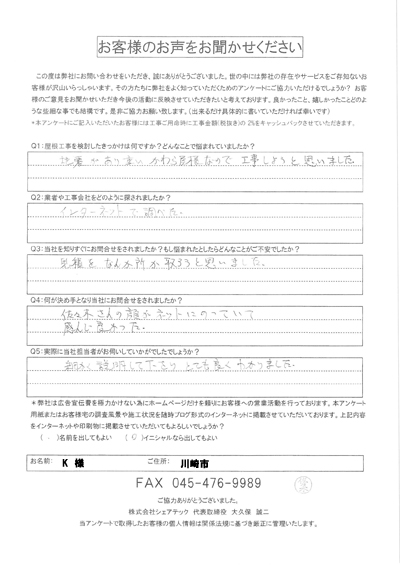 お客様のお声をお聞かせください
この度は弊社にお問い合わせをいただき、誠にありがとうございました。世の中には弊社の存在やサービスをご存知ないお
客様が沢山いらっしゃいます。その方たちに弊社をよく知っていただくためのアンケートにご協力いただけるでしょうか? お客
様のご意見をお聞かせいただき今後の活動に反映させていただきたいと考えております。良かったこと、嬉しかったことどのよう
な些細な事でも結構です。是非ご協力お願い致します。(出来るだけ具体的に書いていただければ幸いです)
*本アンケートにご記入いただいたお客様には工事ご用命時に工事金額(税抜き)の2%をキャッシュバックさせていただきます。
Q1:屋根工事を検討したきっかけは何ですか?どんなことで悩まれていましたか?
地震が 多い かわら屋根なので 工事しようと思いました
Q2:業者や工事会社をどのように探されましたか?
インターネットで調べた。
Q3:当社を知りすぐにお問合せをされましたか?もし悩まれたとしたらどんなことがご不安でしたか?
見積をなん か所か取ろうと思いました。
Q4:何が決め手となり当社にお問合せをされましたか?
佐々木さんの顔がネットにのっていて
感じに良かった。
Q5:実際に当社担当者がお伺いしていかがでしたでしょうか?
細かく説明してくださり とても良くわかりました。
*弊社は広告宣伝費を極力かけない為にホームページだけを頼りにお客様への営業活動を行っております。本アンケート
用紙またはお客様宅の調査風景や施工状況を随時ブログ形式のインターネットに掲載させていただいております。上記内容
をインターネットや印刷物に掲載させていただいてもよろしいでしょうか?
( )名前を出してもよい ( ○ )イニシャルなら出してもよい
お名前: K 様 ご住所: 川崎市
FAX 045-476-9989
ご協力ありがとうございました。
株式会社シェアテック 代表取締役 大久保 誠二
当アンケートで取得したお客様の個人情報は関係法規に基づき厳正に管理いたします。